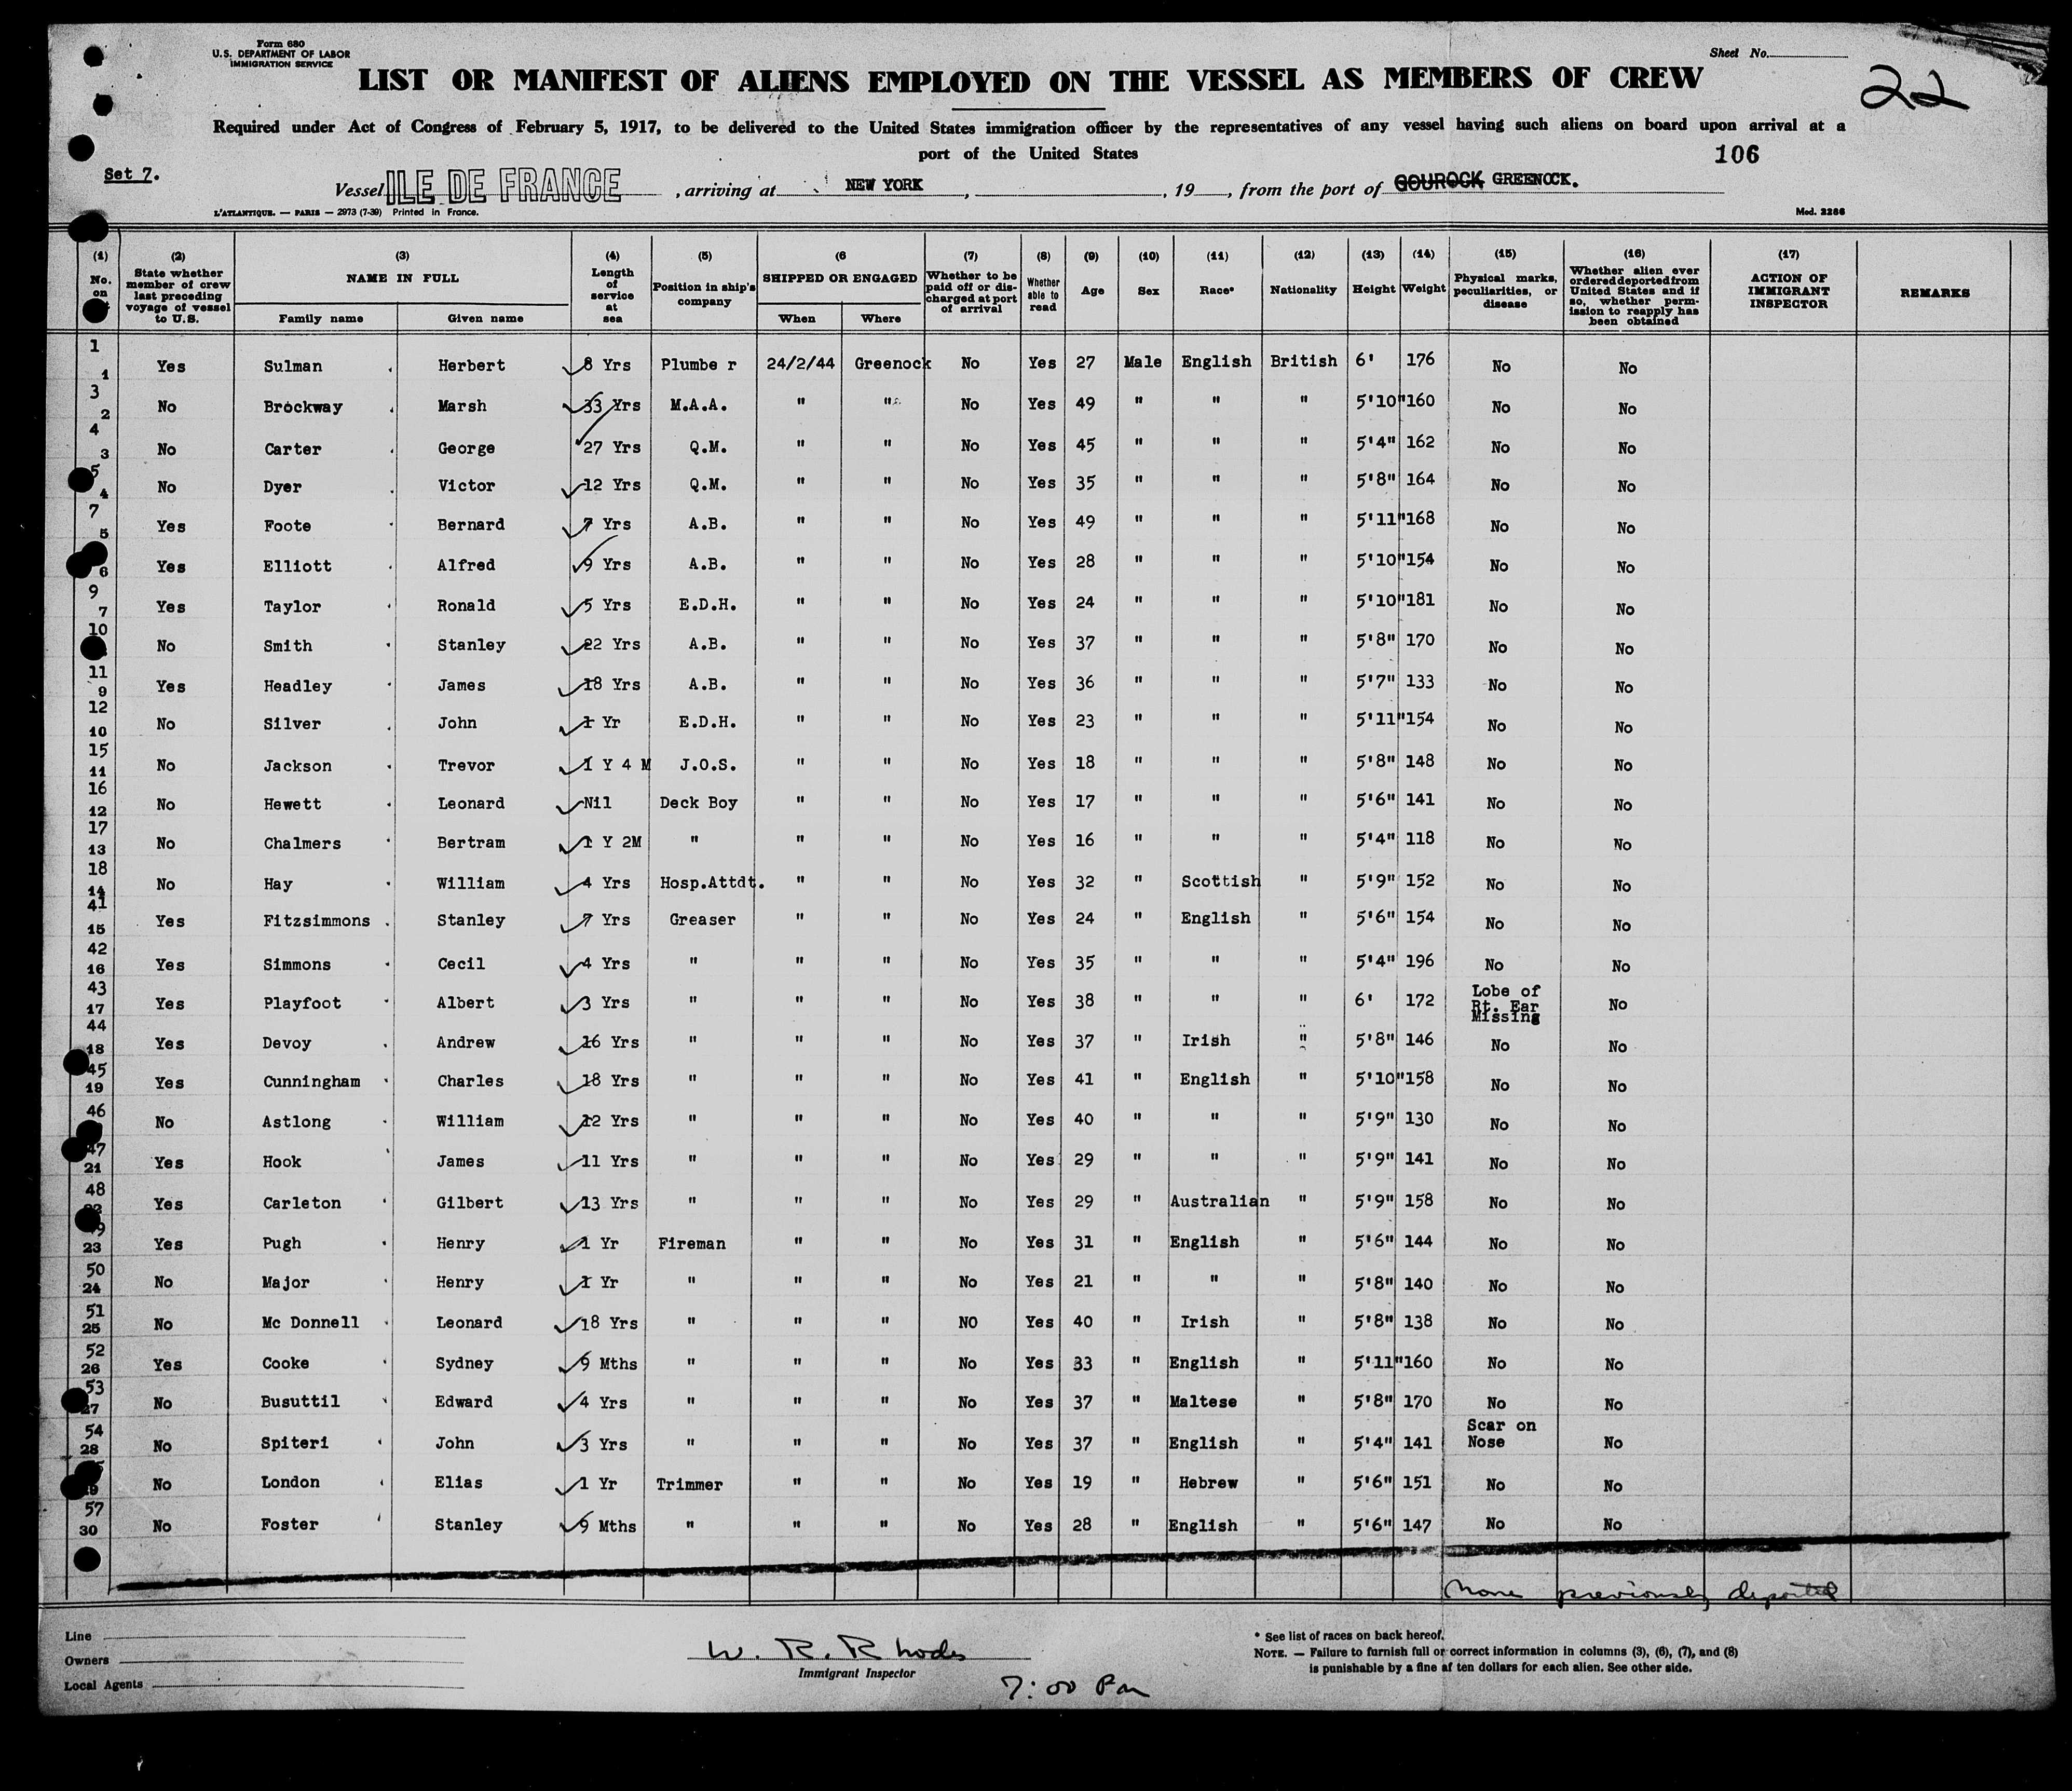 Form 680
U.S. DEPARTMENT OF LABOR
IMMIGRATION SERVICE
Sheet No.
LIST OR MANIFEST OF ALIENS EMPLOYED ON THE VESSEL AS MEMBERS OF CREW
22
Required under Act of Congress of February 5, 1917, to be delivered to the United States immigration officer by the representatives of any vessel having such aliens on board upon arrival at a
port of the United States
106
Set 7.
Vessel ILE DE FRANCE, arriving at NEW YORK, , 19 , from the port of GOUROCK GREENOCK.
L'ATLANTIQUE. — PARIS — 2973 (7-39) Printed in France.
Mod. 2286
(1) (2) (3) (4) (5) (6 (7) (8) (9) (10) (11) (12) (13) (14) (15) (16) (17)
No. on
State whether member of crew last preceding voyage of vessel to U.S.
NAME IN FULL
Family name
Given name
Length of service at sea
Position in ship's company
SHIPPED OR ENGAGED
When
Where
Whether to be paid off or discharged at port of arrival
Whether able to read
Age
Sex
Race*
Nationality
Height
Weight
Physical marks, peculiarities, or disease
Whether alien ever ordered deported from United States and if so, whether permission to reapply has been obtained
ACTION OF IMMIGRANT INSPECTOR
REMARKS
1 1 Yes Sulman Herbert 8 Yrs Plumbe r 24/2/44 Greenock No Yes 27 Male English British 6' 176 No No
3 2 No Brockway Marsh 33 Yrs M.A.A. " " No Yes 49 " " " 5'10" 160 No No
4 3 No Carter George 27 Yrs Q.M. " " No Yes 45 " " " 5'4" 162 No No
5 4 No Dyer Victor 12 Yrs Q.M. " " No Yes 35 " " " 5'8" 164 No No
7 5 Yes Foote Bernard 7 Yrs A.B. " " No Yes 49 " " " 5'11" 168 No No
6 Yes Elliott Alfred 9 Yrs A.B. " " No Yes 28 " " " 5'10" 154 No No
9 7 Yes Taylor Ronald 5 Yrs E.D.H. " " No Yes 24 " " " 5'10" 181 No No
10 No Smith Stanley 22 Yrs A.B. " " No Yes 37 " " " 5'8" 170 No No
11 9 Yes Headley James 18 Yrs A.B. " " No Yes 36 " " " 5'7" 133 No No
12 10 No Silver John 1 Yr E.D.H. " " No Yes 23 " " " 5'11" 154 No No
15 11 No Jackson Trevor 1 Y 4 M J.O.S. " " No Yes 18 " " " 5'8" 148 No No
16 12 No Hewett Leonard Nil Deck Boy " " No Yes 17 " " " 5'6" 141 No No
17 13 No Chalmers Bertram 1 Y 2M " " " No Yes 16 " " " 5'4" 118 No No
18 14 No Hay William 4 Yrs Hosp.Attdt. " " No Yes 32 " Scottish " 5'9" 152 No No
41 15 Yes Fitzsimmons Stanley 7 Yrs Greaser " " No Yes 24 " English " 5'6" 154 No No
42 16 Yes Simmons Cecil 4 Yrs " " " No Yes 35 " " " 5'4" 196 No No
43 17 Yes Playfoot Albert 3 Yrs " " " No Yes 38 " " " 6' 172 Lobe of Rt. Ear Missing No
44 18 Yes Devoy Andrew 16 Yrs " " " No Yes 37 " Irish " 5'8" 146 No No
45 19 Yes Cunningham Charles 18 Yrs " " " No Yes 41 " English " 5'10" 158 No No
46 No Astlong William 12 Yrs " " " No Yes 40 " " " 5'9" 130 No No
47 21 Yes Hook James 11 Yrs " " " No Yes 29 " " " 5'9" 141 No No
48 Yes Carleton Gilbert 13 Yrs " " " No Yes 29 " Australian " 5'9" 158 No No
49 23 Yes Pugh Henry 1 Yr Fireman " " No Yes 31 " English " 5'6" 144 No No
50 24 No Major Henry 1 Yr " " " No Yes 21 " " " 5'8" 140 No No
51 25 No Mc Donnell Leonard 18 Yrs " " " NO Yes 40 " Irish " 5'8" 138 No No
52 26 Yes Cooke Sydney 9 Mths " " " No Yes 33 " English " 5'11" 160 No No
53 27 No Busuttil Edward 4 Yrs " " " No Yes 37 " Maltese " 5'8" 170 No No
54 28 No Spiteri John 3 Yrs " " " No Yes 37 " English " 5'4" 141 Scar on Nose No
No London Elias 1 Yr Trimmer " " No Yes 19 " Hebrew " 5'6" 151 No No
57 30 No Foster Stanley 9 Mths " " " No Yes 28 " English " 5'6" 147 No No
None previously deported
Line
Owners
Local Agents
W. R. Rhodes
Immigrant Inspector
7:00 Pm
* See list of races on back hereof.
NOTE. — Failure to furnish full or correct information in columns (3), (6), (7), and (8)
is punishable by a fine af ten dollars for each alien. See other side.